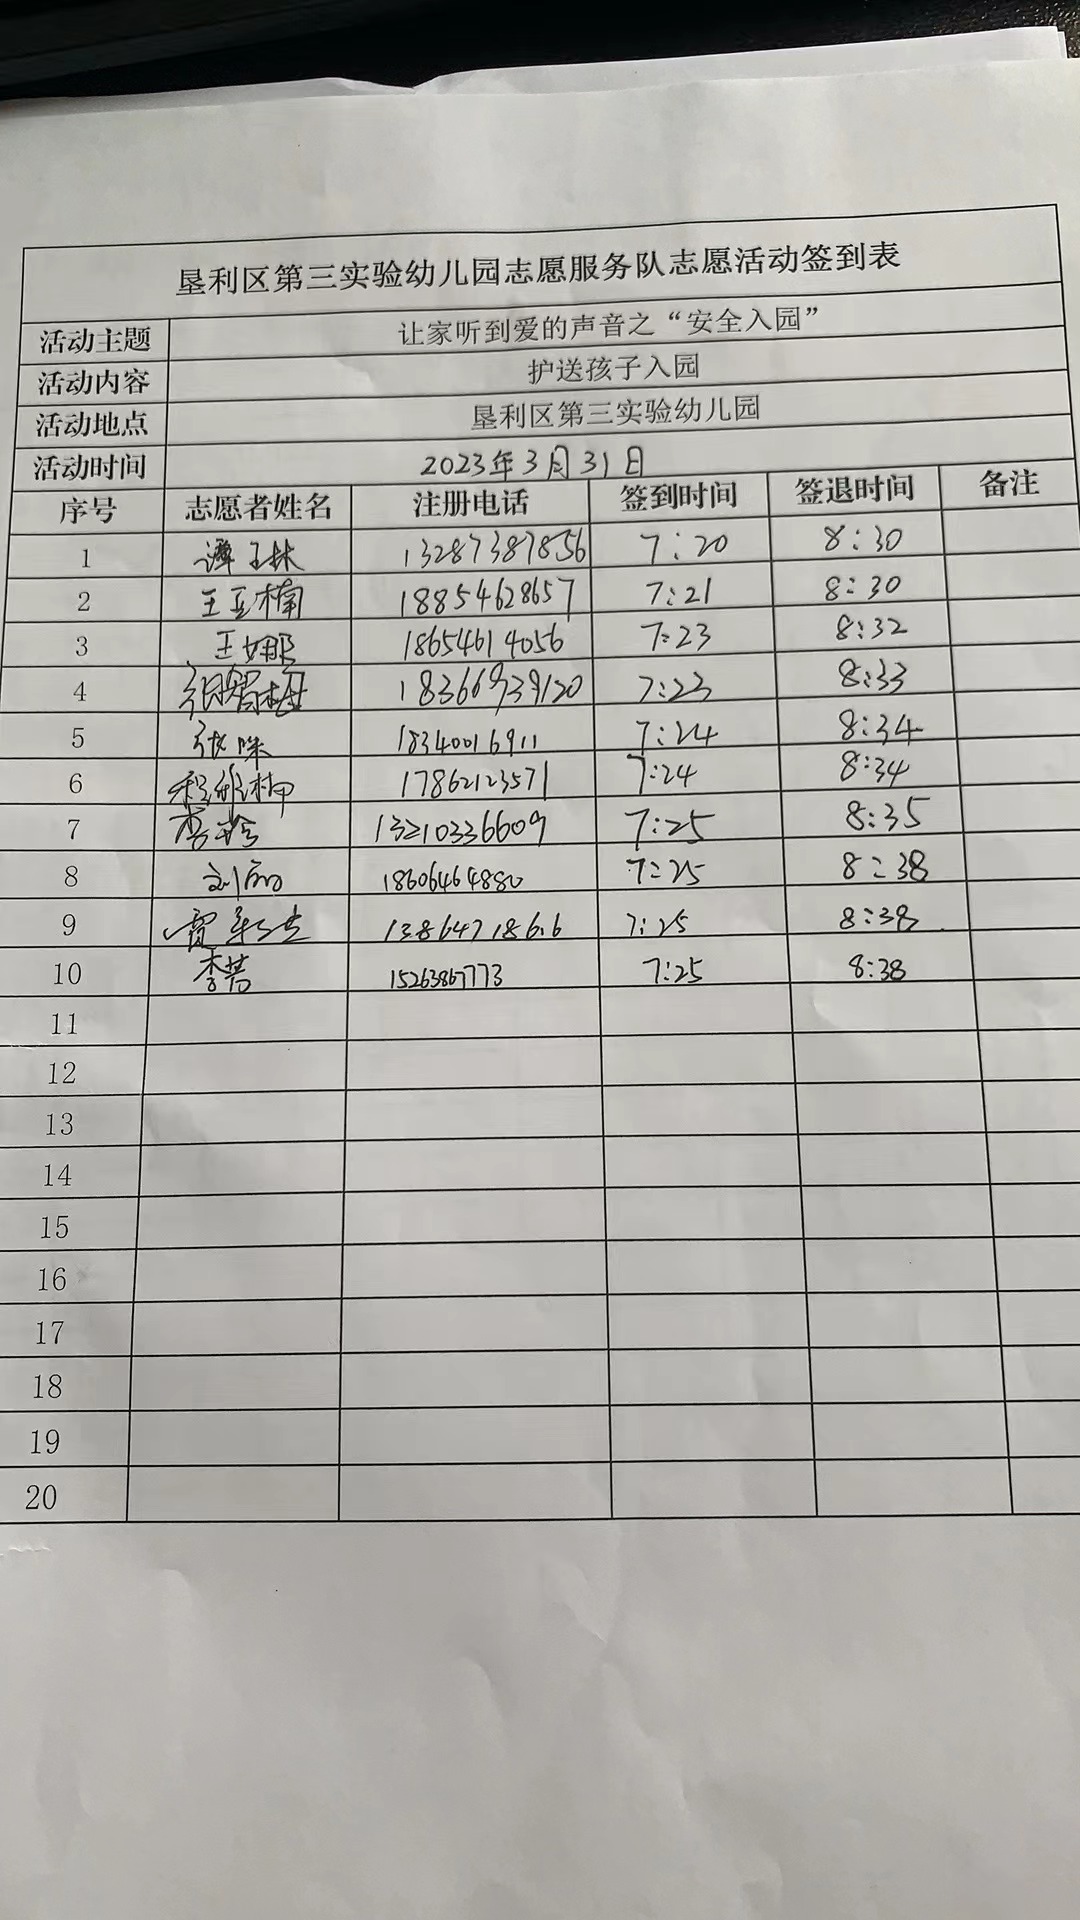 垦利区第三实验幼儿园志愿服务队志愿活动签到表
活动主题 让家听到爱的声音之“安全入园”
活动内容 护送孩子入园
活动地点 垦利区第三实验幼儿园
活动时间 2023年3月31日
序号 志愿者姓名 注册电话 签到时间 签退时间 备注
1 13287387856 7:20 8:30
2 王亚楠 18854628657 7:21 8:30
3 王娜 18654614056 7:23 8:32
4 18366939120 7:23 8:33
5 18340016911 7:24 8:34
6 17862123571 7:24 8:34
7 13210336609 7:25 8:35
8 刘丽 18606464880 7:25 8:38
9 13864718616 7:25 8:38
10 李芳 15263867773 7:25 8:38
11
12
13
14
15
16
17
18
19
20